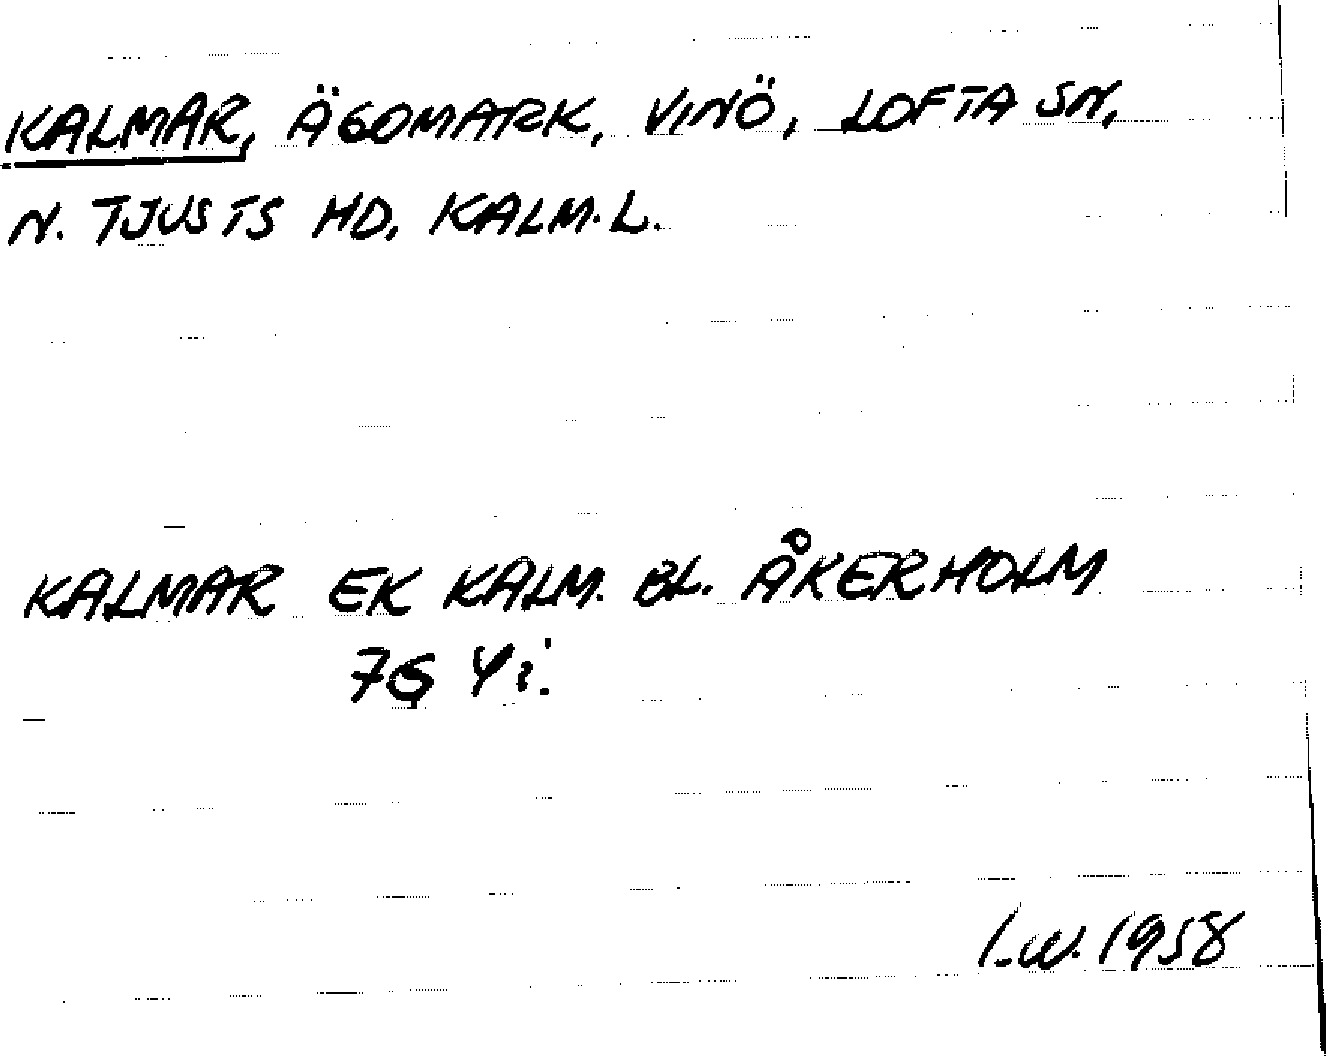 KALMAR, ÄGOMARK, VINÖ, LOFTA SN,
N. TJUSTS HD, KALM. L.
KALMAR EK KALM. BL. ÅKERHOLM
7G 4i.
I.W. 1958